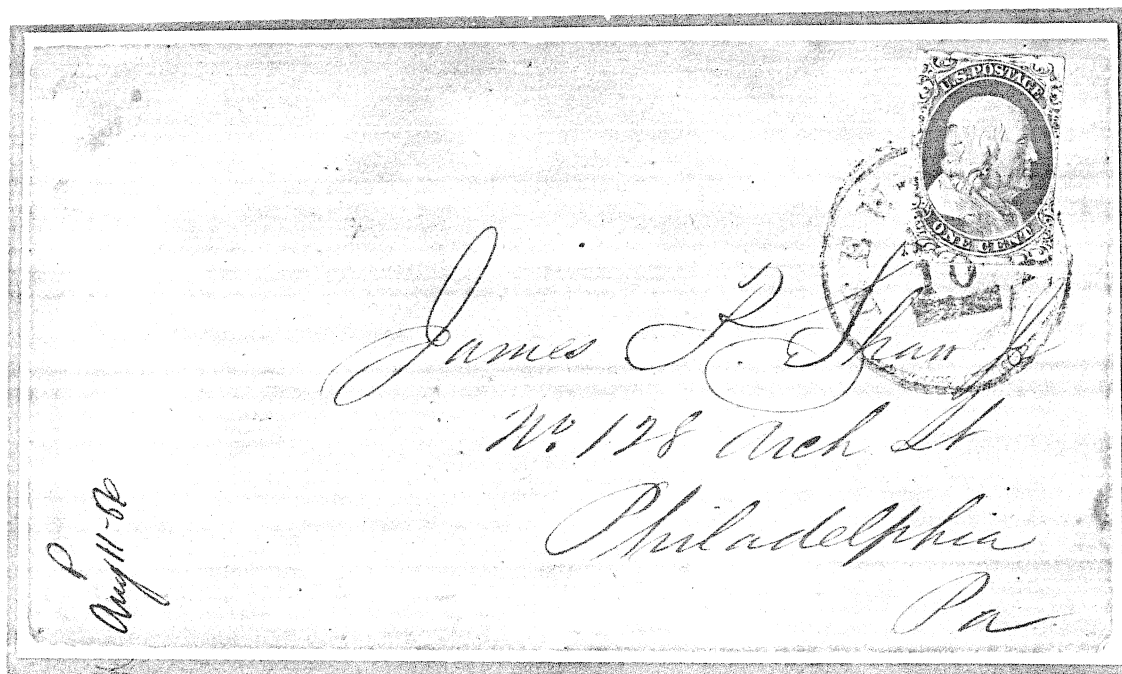 U.S. POSTAGE
ONE CENT
10
James F Shaw Jr
No. 128 Arch St
Philadelphia
Pa
P
Aug 11-56